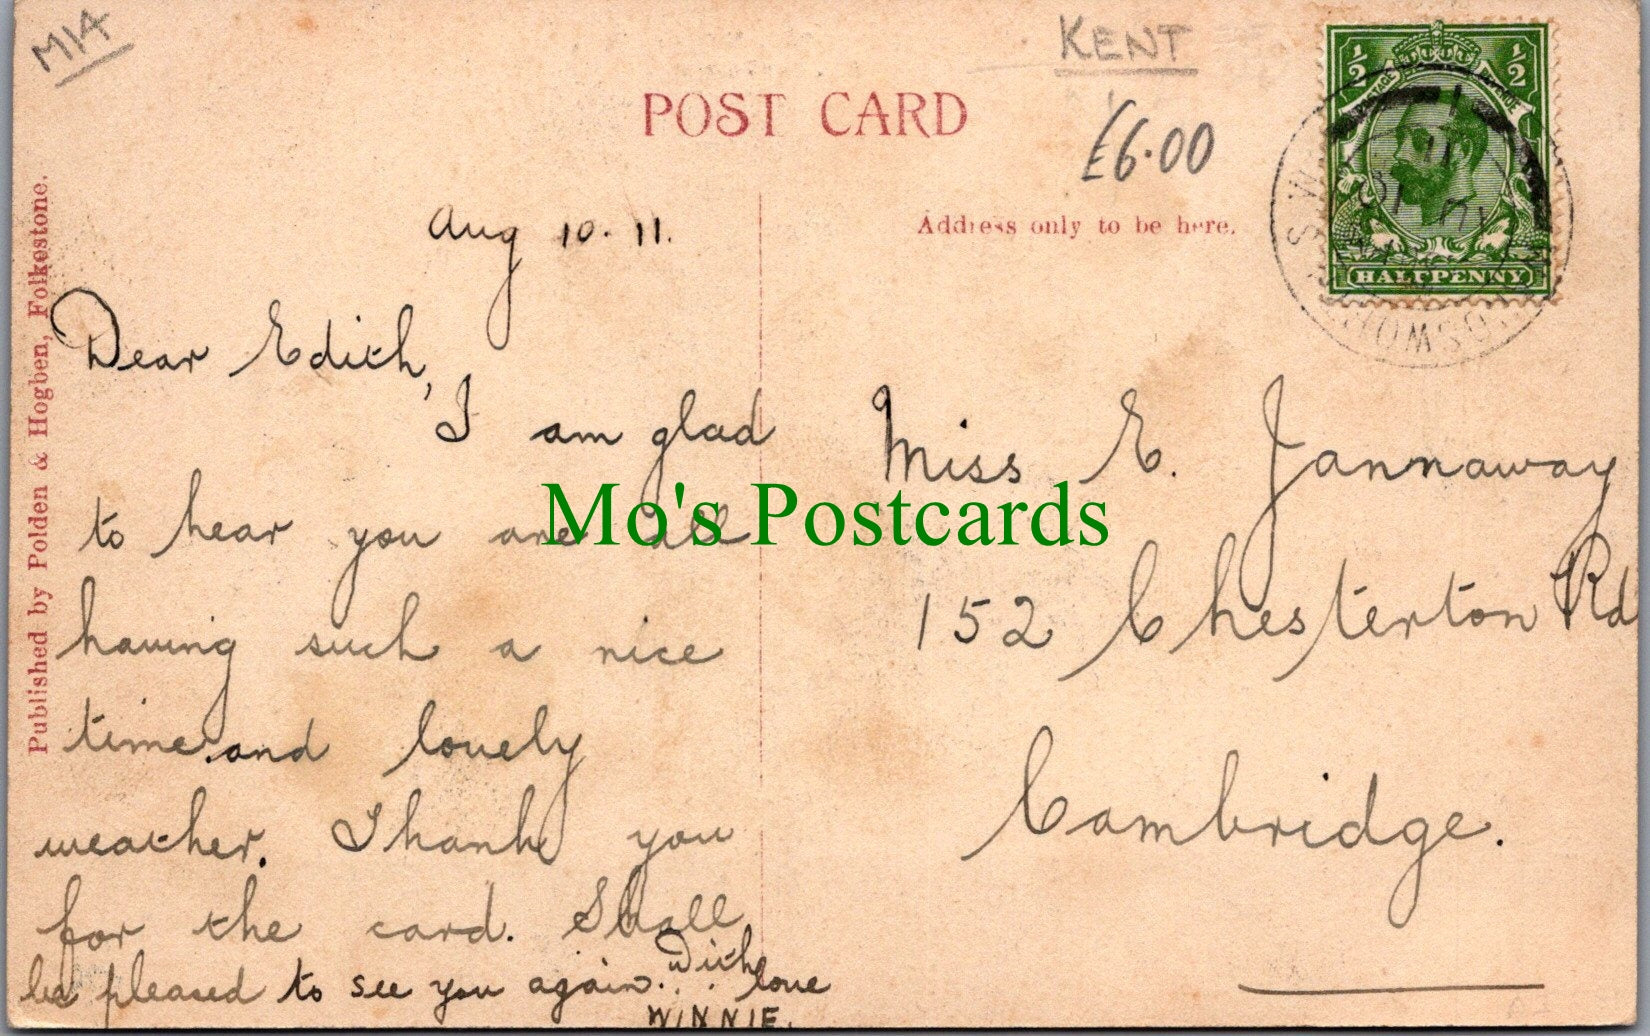 M14
KENT
£6.00
POST CARD
Address only to be here.
½ ½
HALFPENNY
Published by Polden & Hogben, Folkestone.
Aug 10. 11.
Dear Edith,
I am glad
to hear you are all
having such a nice
time and lovely
weather. Thank you
for the card. Shall
be pleased to see you again. With love
WINNIE.
Miss E. Jannaway
152 Chesterton Rd
Cambridge.
Mo's Postcards